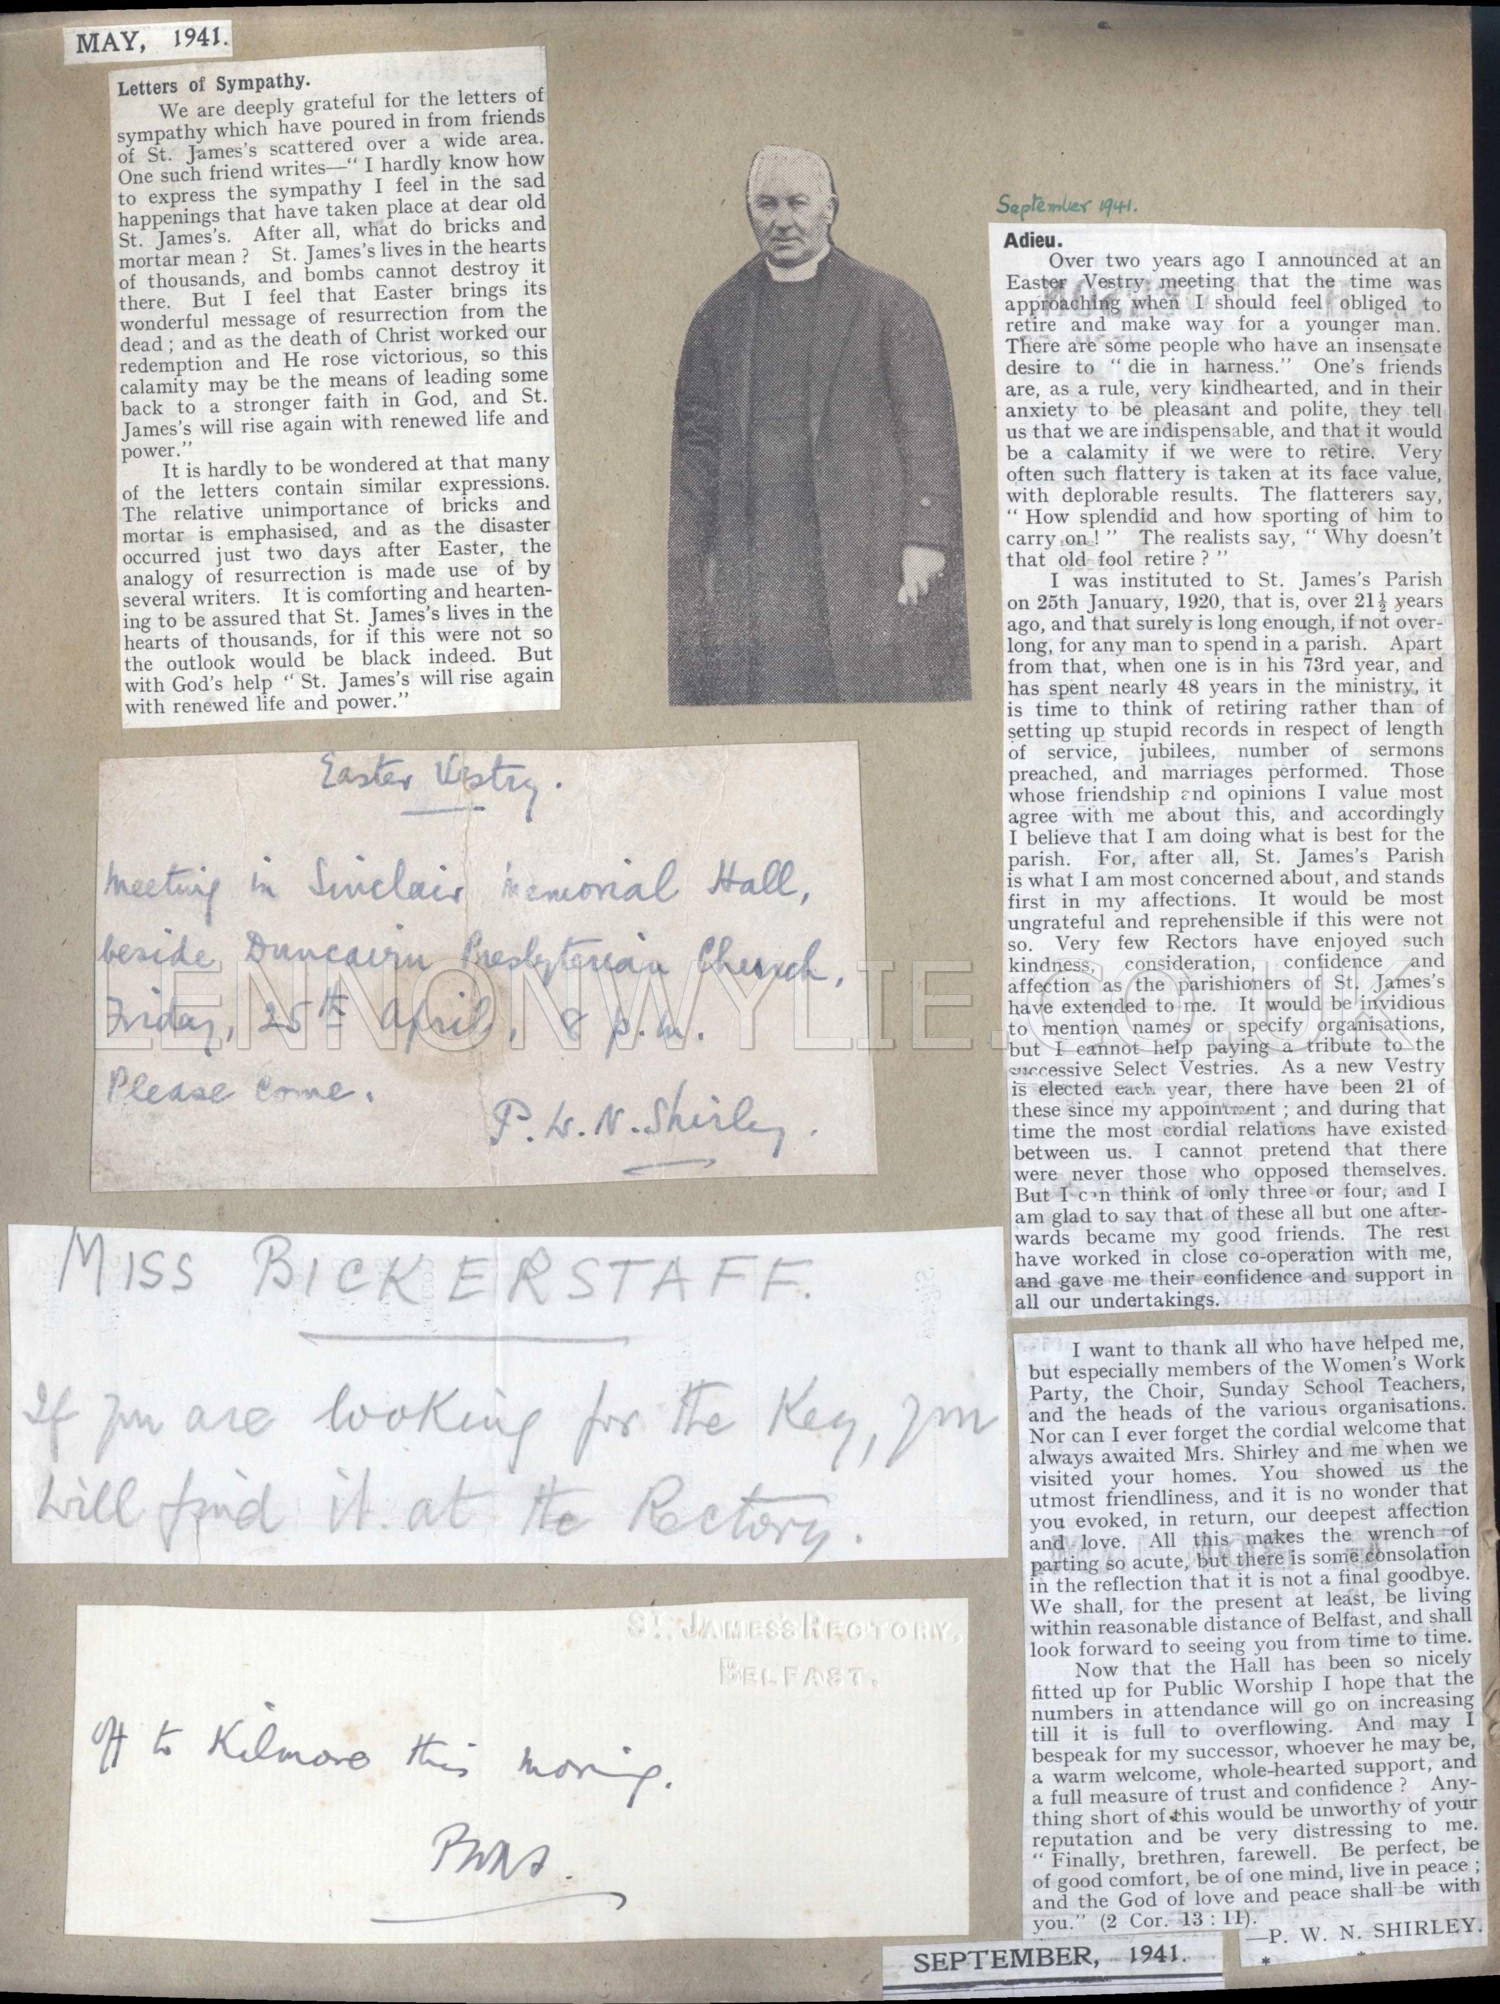 MAY, 1941.
Letters of Sympathy.
We are deeply grateful for the letters of
sympathy which have poured in from friends
of St. James's scattered over a wide area.
One such friend writes—" I hardly know how
to express the sympathy I feel in the sad
happenings that have taken place at dear old
St. James's. After all, what do bricks and
mortar mean ? St. James's lives in the hearts
of thousands, and bombs cannot destroy it
there. But I feel that Easter brings its
wonderful message of resurrection from the
dead ; and as the death of Christ worked our
redemption and He rose victorious, so this
calamity may be the means of leading some
back to a stronger faith in God, and St.
James's will rise again with renewed life and
power."
It is hardly to be wondered at that many
of the letters contain similar expressions.
The relative unimportance of bricks and
mortar is emphasised, and as the disaster
occurred just two days after Easter, the
analogy of resurrection is made use of by
several writers. It is comforting and hearten-
ing to be assured that St. James's lives in the
hearts of thousands, for if this were not so
the outlook would be black indeed. But
with God's help " St. James's will rise again
with renewed life and power."
Easter Vestry.
Meeting in Sinclair Memorial Hall,
beside Duncairn Presbyterian Church,
Friday, 25th April, 8 p.m.
Please come.
P. W. N. Shirley.
MISS BICKERSTAFF.
If you are looking for the Key, you
will find it at the Rectory.
ST. JAMES'S RECTORY,
BELFAST.
Off to Kilmore this morning.
PWNS.
September 1941.
Adieu.
Over two years ago I announced at an
Easter Vestry meeting that the time was
approaching when I should feel obliged to
retire and make way for a younger man.
There are some people who have an insensate
desire to " die in harness." One's friends
are, as a rule, very kindhearted, and in their
anxiety to be pleasant and polite, they tell
us that we are indispensable, and that it would
be a calamity if we were to retire. Very
often such flattery is taken at its face value,
with deplorable results. The flatterers say,
" How splendid and how sporting of him to
carry on ! " The realists say, " Why doesn't
that old fool retire ? "
I was instituted to St. James's Parish
on 25th January, 1920, that is, over 21½ years
ago, and that surely is long enough, if not over-
long, for any man to spend in a parish. Apart
from that, when one is in his 73rd year, and
has spent nearly 48 years in the ministry, it
is time to think of retiring rather than of
setting up stupid records in respect of length
of service, jubilees, number of sermons
preached, and marriages performed. Those
whose friendship and opinions I value most
agree with me about this, and accordingly
I believe that I am doing what is best for the
parish. For, after all, St. James's Parish
is what I am most concerned about, and stands
first in my affections. It would be most
ungrateful and reprehensible if this were not
so. Very few Rectors have enjoyed such
kindness, consideration, confidence and
affection as the parishioners of St. James's
have extended to me. It would be invidious
to mention names or specify organisations,
but I cannot help paying a tribute to the
successive Select Vestries. As a new Vestry
is elected each year, there have been 21 of
these since my appointment ; and during that
time the most cordial relations have existed
between us. I cannot pretend that there
were never those who opposed themselves.
But I can think of only three or four, and I
am glad to say that of these all but one after-
wards became my good friends. The rest
have worked in close co-operation with me,
and gave me their confidence and support in
all our undertakings.
I want to thank all who have helped me,
but especially members of the Women's Work
Party, the Choir, Sunday School Teachers,
and the heads of the various organisations.
Nor can I ever forget the cordial welcome that
always awaited Mrs. Shirley and me when we
visited your homes. You showed us the
utmost friendliness, and it is no wonder that
you evoked, in return, our deepest affection
and love. All this makes the wrench of
parting so acute, but there is some consolation
in the reflection that it is not a final goodbye.
We shall, for the present at least, be living
within reasonable distance of Belfast, and shall
look forward to seeing you from time to time.
Now that the Hall has been so nicely
fitted up for Public Worship I hope that the
numbers in attendance will go on increasing
till it is full to overflowing. And may I
bespeak for my successor, whoever he may be,
a warm welcome, whole-hearted support, and
a full measure of trust and confidence ? Any-
thing short of this would be unworthy of your
reputation and be very distressing to me.
" Finally, brethren, farewell. Be perfect, be
of good comfort, be of one mind, live in peace ;
and the God of love and peace shall be with
you." (2 Cor. 13 : 11).
—P. W. N. SHIRLEY.
* *
SEPTEMBER, 1941.
LENNONWYLIE.CO.UK